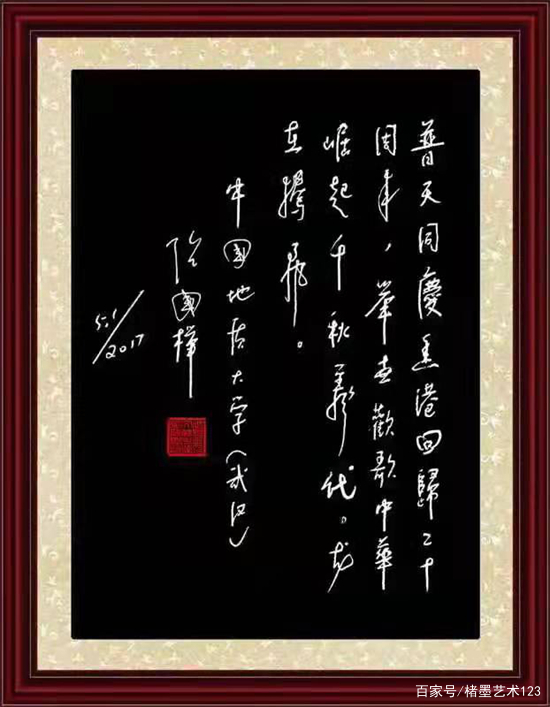 普天同慶香港回歸二十
周年，華夏歡歌中華
崛起千秋代。龙
在騰飛。
中國地质大学（武汉）
國
5.1/2017
百家号/楮墨艺术123